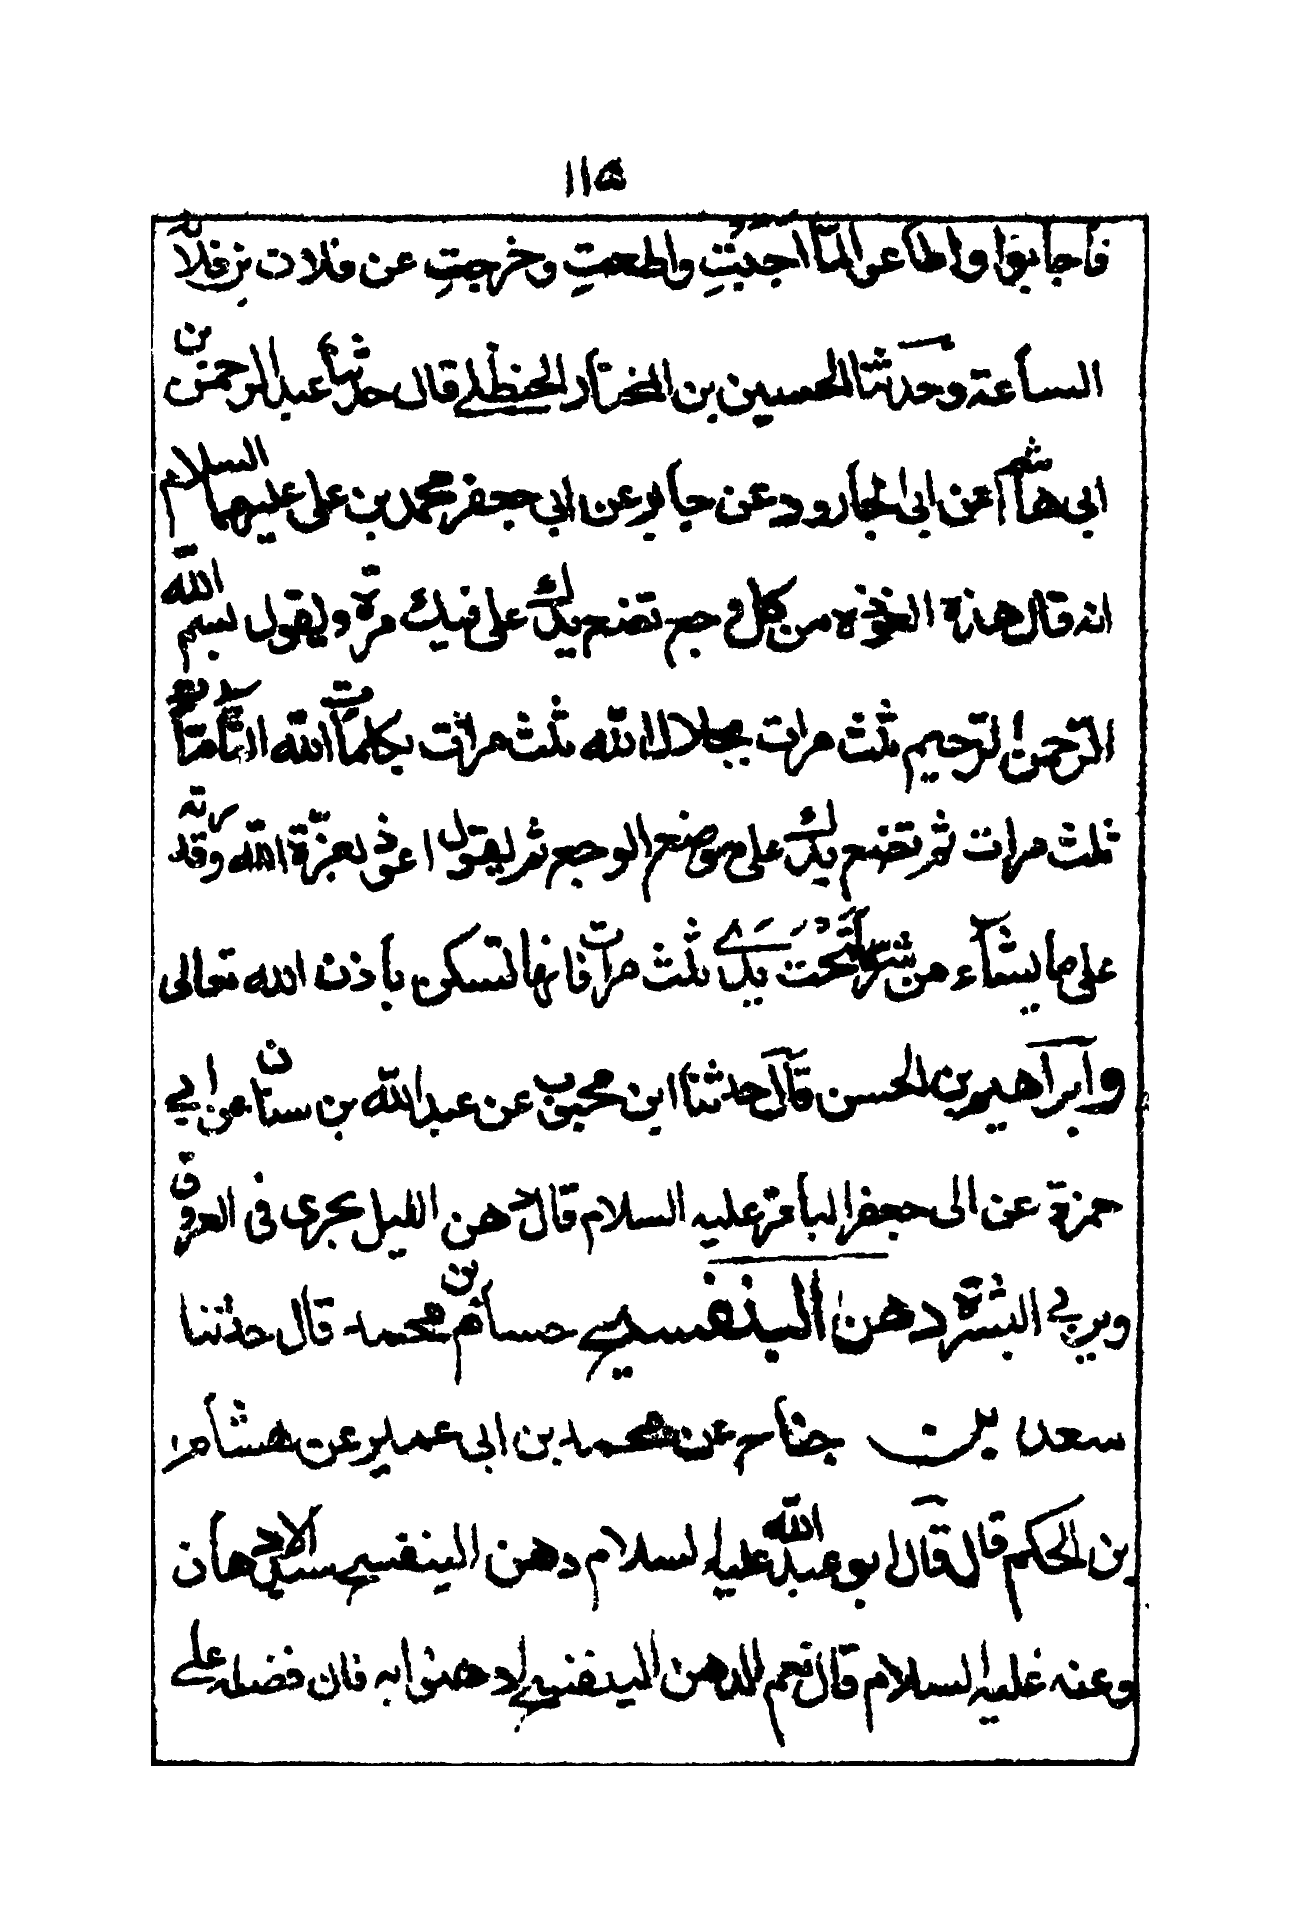 ١١٥
فأجابوا وأطاعوا لما أجبتِ وأطعتِ وخرجتِ عن فلان بن فلان
الساعة وحدثنا الحسين بن المختار الحنظلي قال حدثنا عبد الرحمن بن
ابي هاشم عن ابي الجارود عن جابر عن ابي جعفر محمد بن علي عليهما السلام
انه قال هذه العوذة من كل وجع تضع يدك على فيك مرة وتقول بسم الله
الرحمن الرحيم ثلث مرات بجلال الله ثلث مرات بكلمات الله التامات
ثلث مرات ثم تضع يدك على موضع الوجع ثم تقول اعوذ بعزة الله وقدرته
على ما يشآء من شر ما تحت يدي ثلث مرات فانها تسكن باذن الله تعالى
وابراهيم بن الحسن قال حدثنا ابن محبوب عن عبد الله بن سنان عن ابي
حمزة عن ابى جعفر الباقر عليه السلام قال دهن الليل يجرى فى العروق
ويربي البشرة دهن البنفسج حسام بن محمد قال حدثنا
سعد بن جناح عن محمد بن ابى عمير عن هشام
بن الحكم قال قال ابو عبد الله عليه السلام دهن البنفسج سيد الادهان
وعنه عليه السلام قال نعم الدهن البنفسج ادهنوا به فان فضله على